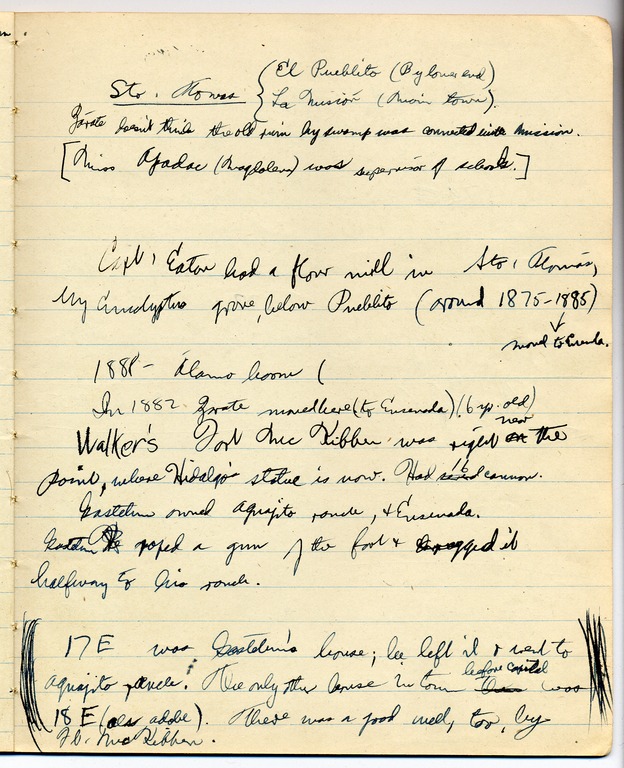 El Pueblito (By lower end)
Sto. Tomas { La Misión (Main town).
Zárate doesn't think the old ruin by swamp was connected with mission.
[Miss Apadac (Magdalena) was supervisor of schools.]
Capt. Eaton had a flour mill in Sto. Tomás,
by Eucalyptus grove, below Pueblito (around 1875-1885)
moved to Ensenada.
1888- Álamo boom (
In 1882 Zarate moved here (to Ensenada) (6 yr. old)
near
Walker's Fort McKibben was right on the
point, where Hidalgo's statue is now. Had cannon.
Gastelum owned Aguajito ranch, & Ensenada.
He roped a gun of the fort & dragged it
halfway to his ranch.
17 E was Gastelum's house; he left it & went to
before capital
aguajito ranch. The only other house in town was
18 E (also adobe). There was a good well, too, by
Ft. McKibben.